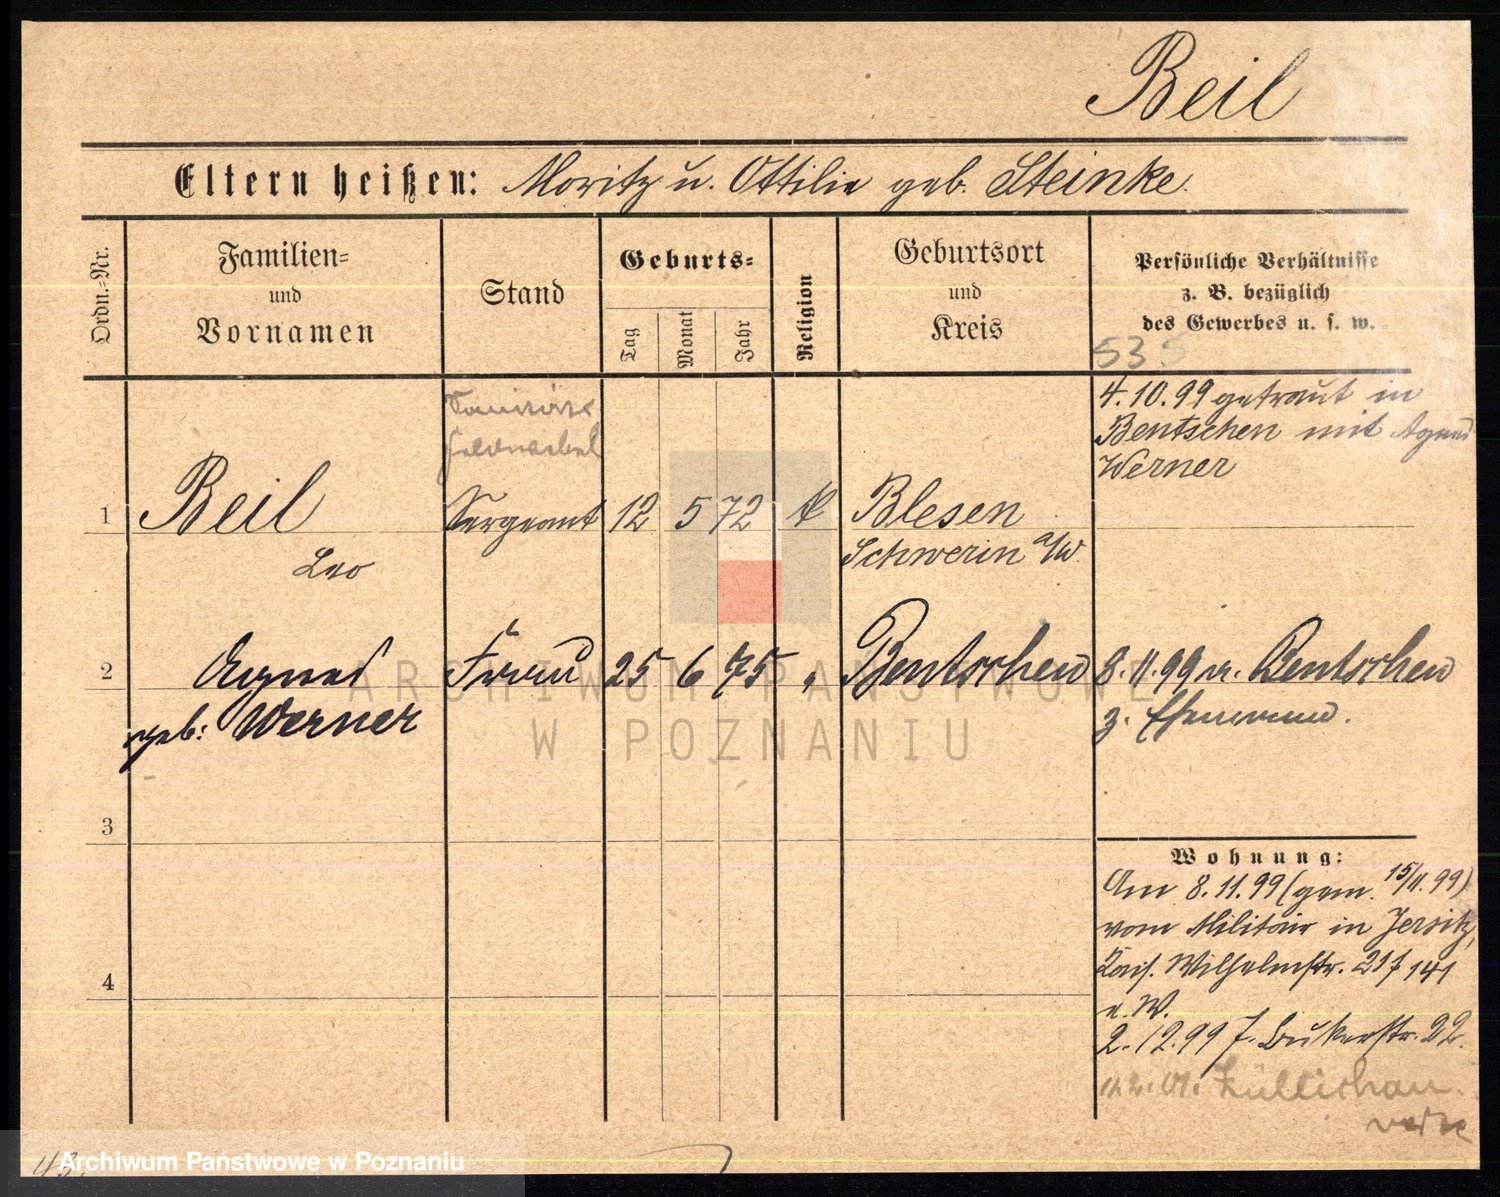 Beil
Eltern heißen: Moritz u. Ottilie geb. Steinke
Ordn.-Nr.
Familien-
und
Vornamen
Stand
Geburts-
Tag
Monat
Jahr
Religion
Geburtsort
und
Kreis
Persönliche Verhältnisse
z. B. bezüglich
des Gewerbes u. s. w.
53
4.10.99 getraut in
Bentschen mit Agnes
Werner
Feldwebel
1 Beil Sergeant 12 5 72 k Blesen
Leo Schwerin a/W.
2 Agnes Frau 25 6 75 " Bentschen 8.11.99 v. Bentschen
geb: Werner z. Ehemann.
3
4
Wohnung:
Am 8.11.99 (gem. 15/11.99)
vom Militair in Jersitz,
Kais. Wilhelmstr. 21 f 141
u. W.
2.12.99 J. Bukerstr. 22.
11.2.01. Züllichau
43.
ARCHIWUM PAŃSTWOWE
W POZNANIU
Archiwum Państwowe w Poznaniu